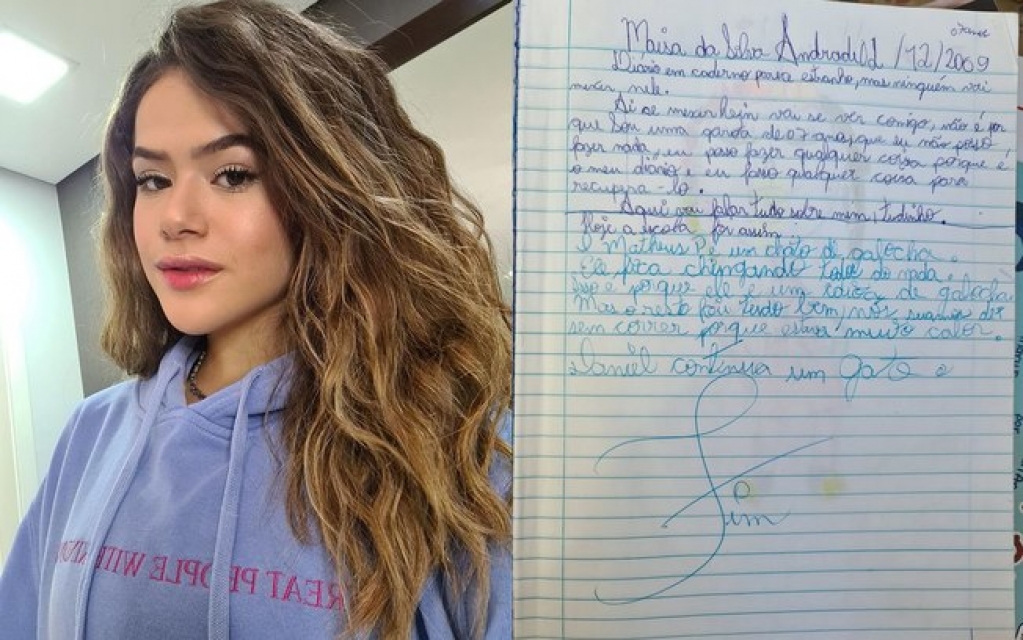 REAT PEOPLE WITH
07 anos
Maisa da Silva Andrade 01/12/2009
Diário em caderno parece estranho, mas ninguém vai
mexer, nele.
Ai se mexer hein vai se ver comigo, não é por
que sou uma garota de 07 anos, que eu não posso
fazer nada, eu posso fazer qualquer coisa porque é
o meu diário e eu faço qualquer coisa para
recupera-lo.
Aqui vai falar tudo sobre mim, tudinho.
Hoje a escola foi assim
O Matheus P é um chato de galocha.
Ele fica chingando do nada.
Isso é porque ele é um de galocha
Mas o resto foi tudo bem, nós
sem correr porque estava muito calor.
Daniel continua um gato e
Fim